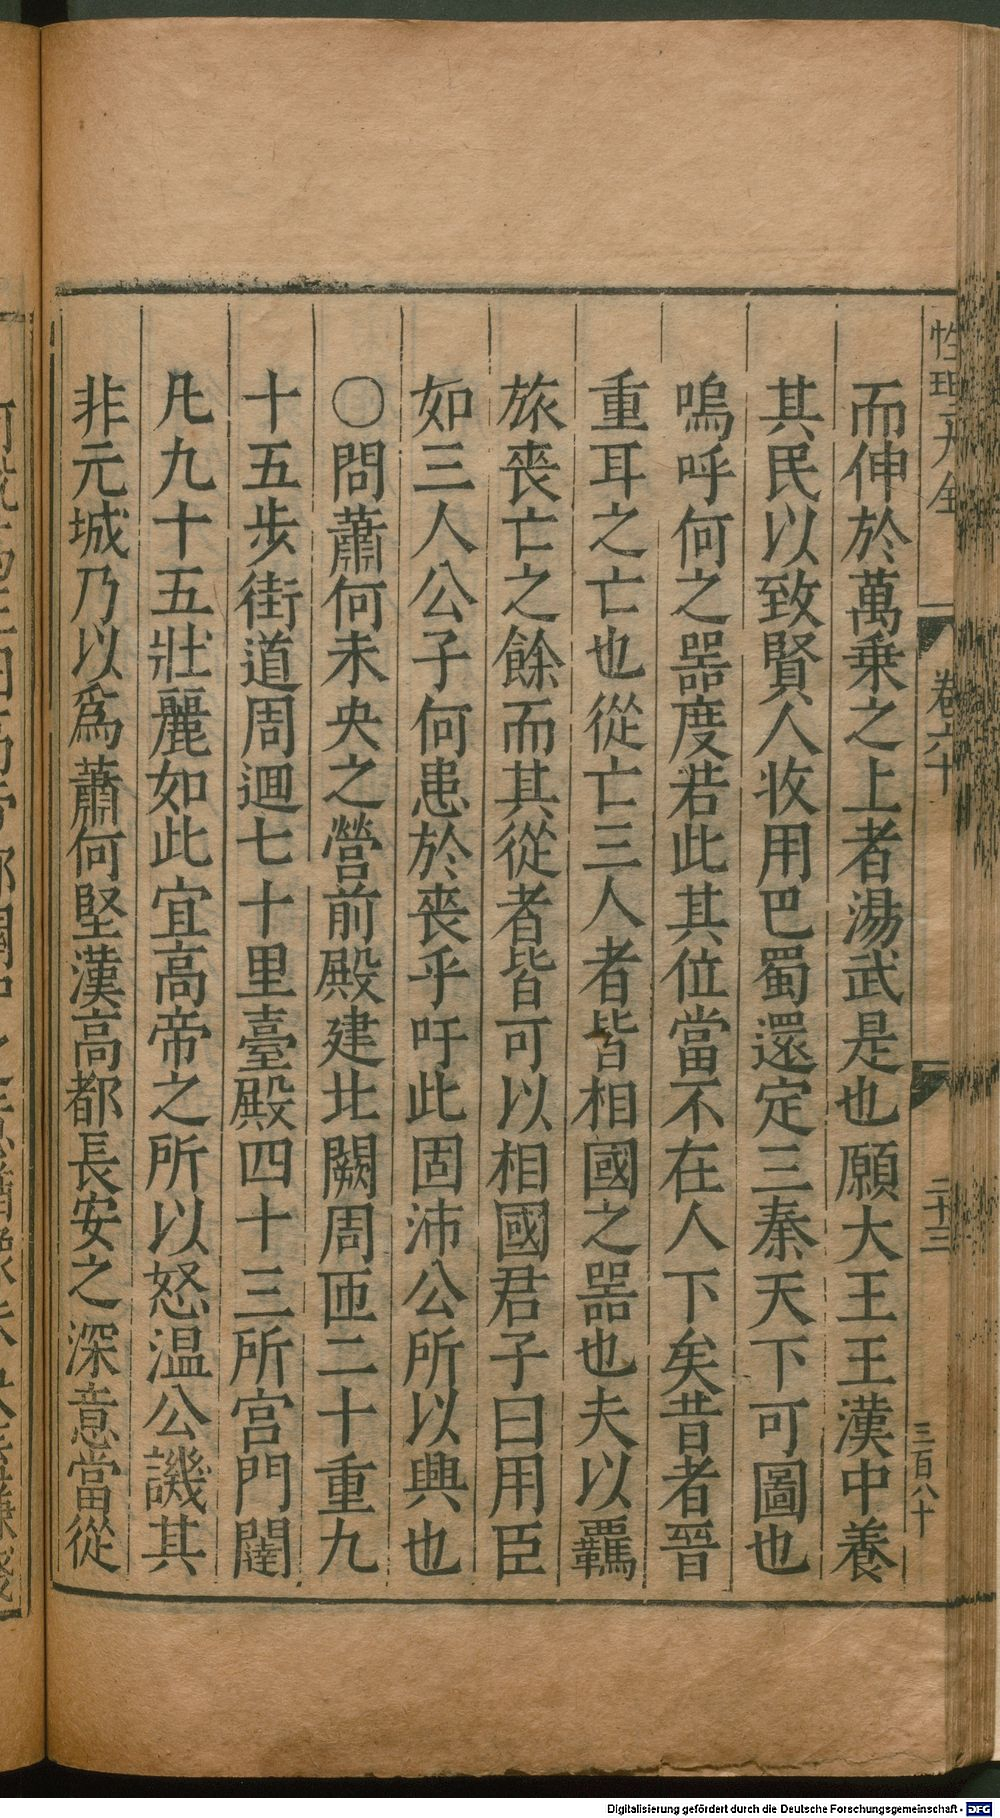 性理大全
卷六十
二十三
三百八十
而伸於萬乗之上者湯武是也願大王王漢中養
其民以致賢人收用巴蜀還定三秦天下可圖也
嗚呼何之噐度若此其位當不在人下矣昔者晉
重耳之亡也從亡三人者皆相國之噐也夫以羈
旅喪亡之餘而其從者皆可以相國君子曰用臣
如三人公子何患於喪乎吁此固沛公所以興也
○問蕭何未央之營前殿建北闕周匝二十重九
十五步街道周迴七十里臺殿四十三所宫門闥
凡九十五壯麗如此宜高帝之所以怒温公譏其
非元城乃以爲蕭何堅漢高都長安之深意當從
Digitalisierung gefördert durch die Deutsche Forschungsgemeinschaft - DFG